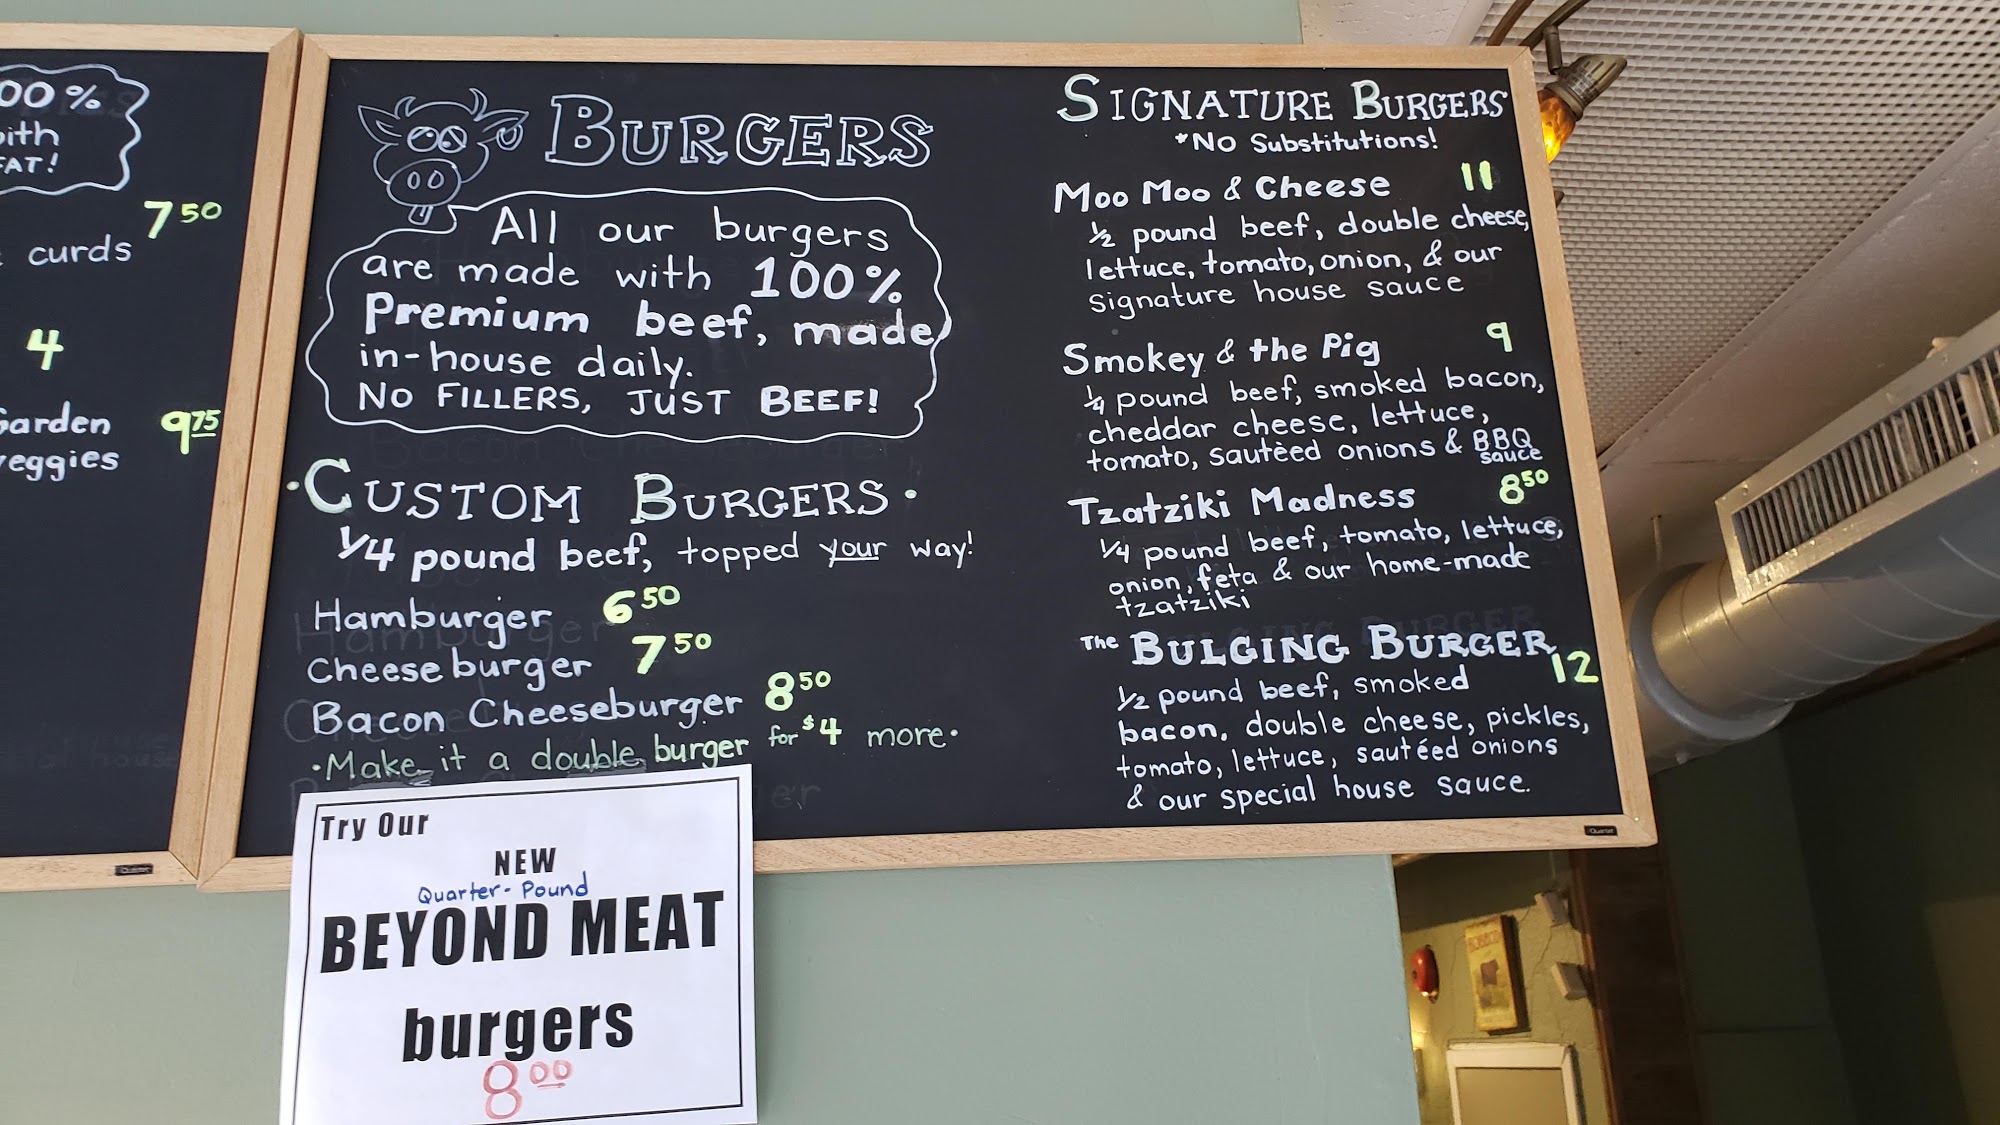 00%
with
FAT!
7 50
curds
4
Garden 9 75
veggies
BURGERS
All our burgers
are made with 100%
Premium beef, made
in-house daily.
NO FILLERS, JUST BEEF!
·CUSTOM BURGERS·
1/4 pound beef, topped your way!
Hamburger 6 50
Cheeseburger 7 50
Bacon Cheeseburger 8 50
·Make it a double burger for $4 more·
SIGNATURE BURGERS
*NO Substitutions!
Moo Moo & Cheese 11
1/2 pound beef, double cheese,
lettuce, tomato, onion, & our
signature house sauce
Smokey & the Pig 9
1/4 pound beef, smoked bacon,
cheddar cheese, lettuce,
tomato, sautèed onions & BBQ
sauce
Tzatziki Madness 8 50
1/4 pound beef, tomato, lettuce,
onion, feta & our home-made
tzatziki
The BULGING BURGER 12
1/2 pound beef, smoked
bacon, double cheese, pickles,
tomato, lettuce, sautéed onions
& our special house sauce.
Try Our
NEW
Quarter-Pound
BEYOND MEAT
burgers
8 00